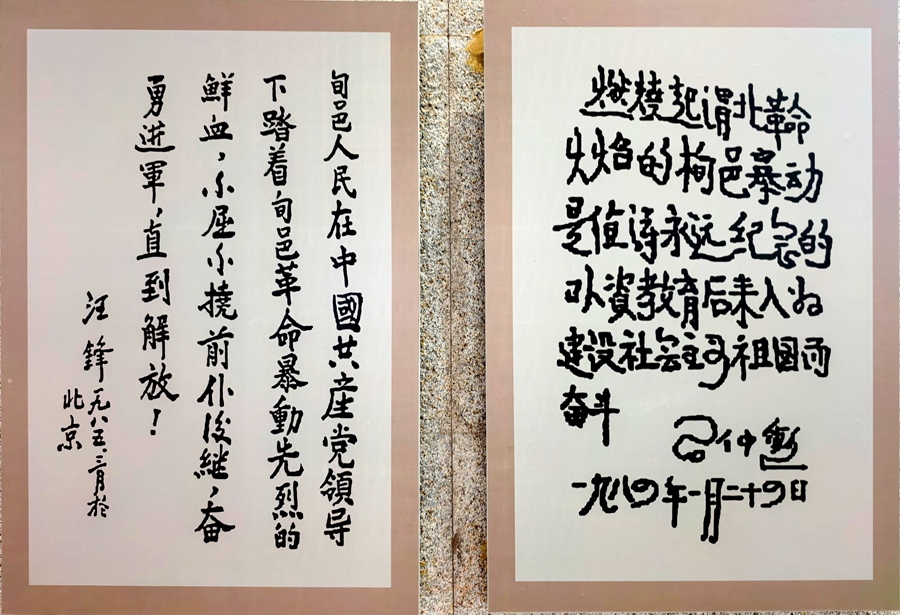 旬邑人民在中國共産党領导
下踏着旬邑革命暴動先烈的
鮮血，不屈不撓前仆後継，奋
勇进軍，直到解放！
汪鋒一九八五、三月於
北京
燃燒起渭北革命
火焰的栒邑暴动
是值淂永远纪念的
以資教育后来人为
建设社会主义祖国而
奋斗
一九八四年一月二十四日